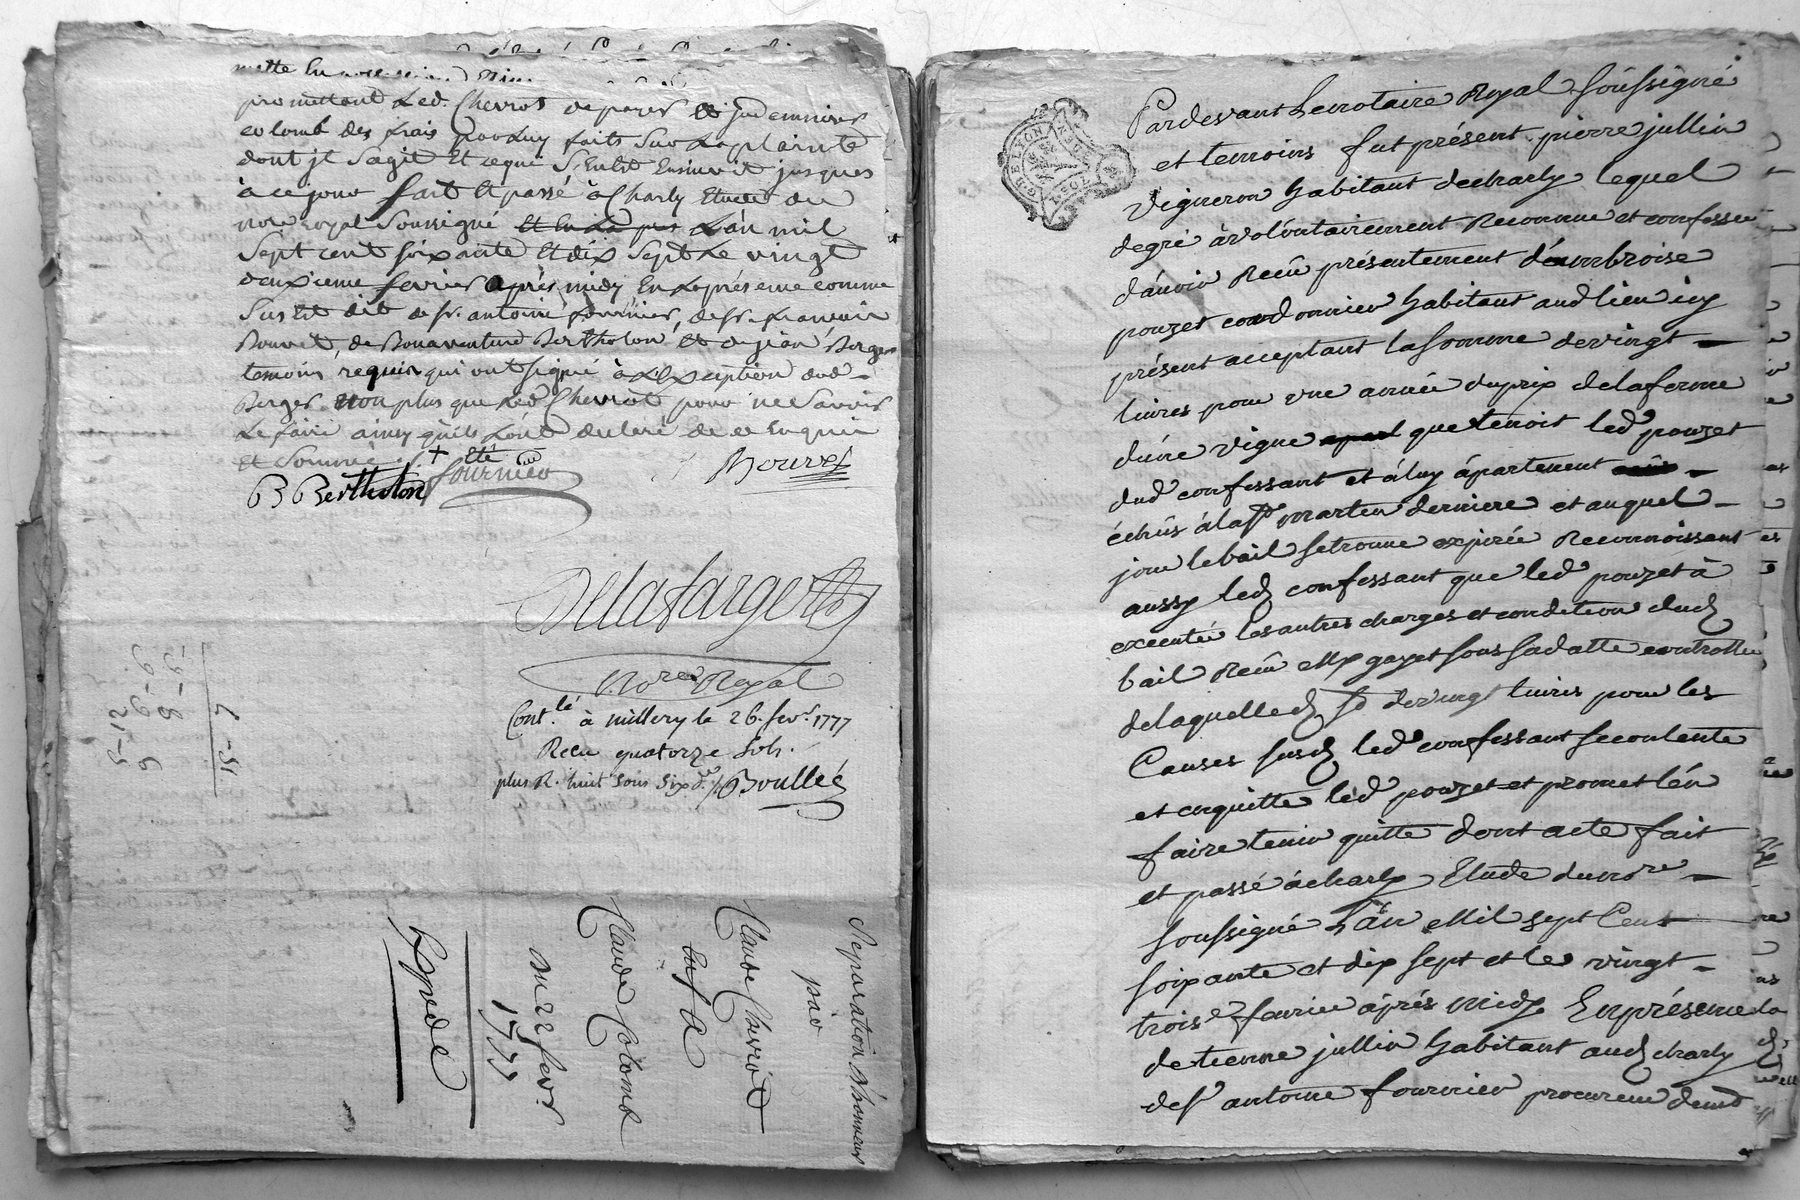 mette En
promettant Led. Chevrot de payer et jndemniser
colomb des frais par Luy faits sur La plainte
dont jl sagit Et cequi s'En Est Ensuivit jusques
à ce jour fait Et passé à Charly Etude du
nore royal soussigné L'an mil
sept cent soixante Et dix sept Le vingt
deuxieme fevrier après midy En La présence comme
sus Est dit de sr. antoine fournier, de sr. francois
Bouvet, de Bonaventure Bertholon, et de jean Berger
temoins requis qui ont signé à L'Exception dud
Berger non plus que Led Chevrot pour ne Savoir
Le faire ainsy qu'ils L'ont declaré de ce Enquis
Et Sommés +
B Bertholon fournier Bouvet
Delafarge
Nore Royal
Cont.lé à millery le 26. fevr. 1777
Recu quatorze sols.
plus R. huit sous six d. Boullée
Separation d'honneur
par
Claude Chevrot
Claude Colomb
du 22 fevr
1777
Expedié
Pardevant Le notaire Royal soussigné
et temoins fut présent pierre jullin
vigneron habitant de charly lequel
de gré à volontairement Reconnu et confessé
d'avoir Reçû présentement d'ambroise
pouzet cordonnier habitant aud lieu icy
présent acceptant la somme de vingt
livres pour une année du prix de la ferme
d'une vigne que tenoit led pouzet
dud confessant et à luy apartenent
échûs à la st martin derniere et auquel
jour le bail se trouve expirée Reconnoissant
aussy led confessant que led pouzet à
executée les autres charges et condition dud
bail Reçû Mr gayet sous sa datte controllée
de laquelle d. so de vingt livres pour les
Causes susd led confessant se contente
et enquitte led pouzet et promet l'én
faire tenir quitte dont acte fait
et passé à charly Etude du nore
soussigné L'an Mil sept Cent
soixante et dix sept et le vingt
trois fevrier après midy En présence
detienne jullin habitant aud charly
de sr antoine fournier procureur